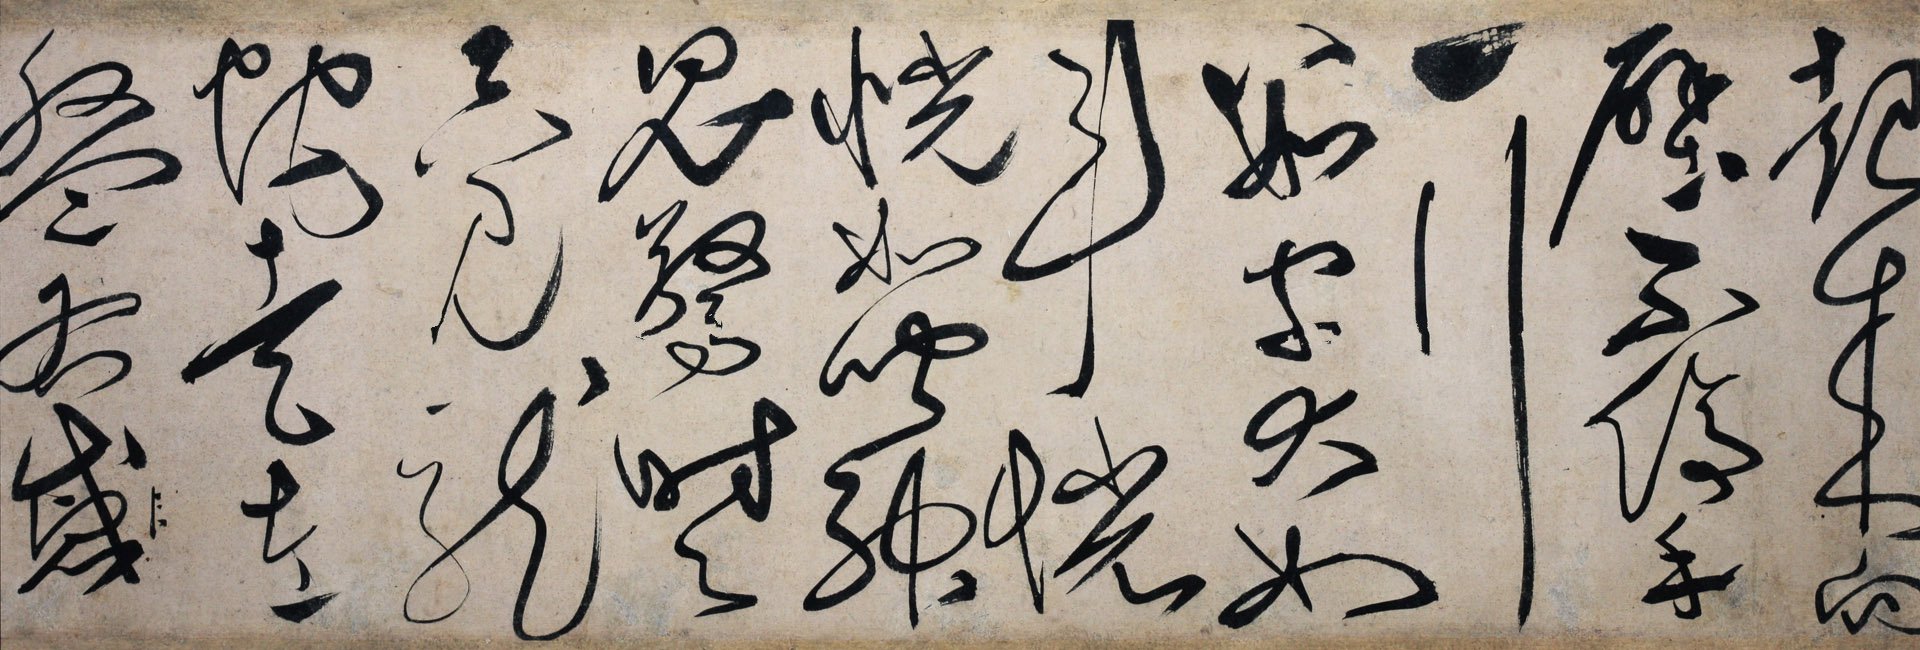 起來向
壁不停手
一行
數字大如
斗恍
恍如聞神
鬼驚時〻
只見龍
蛇走左
盤右